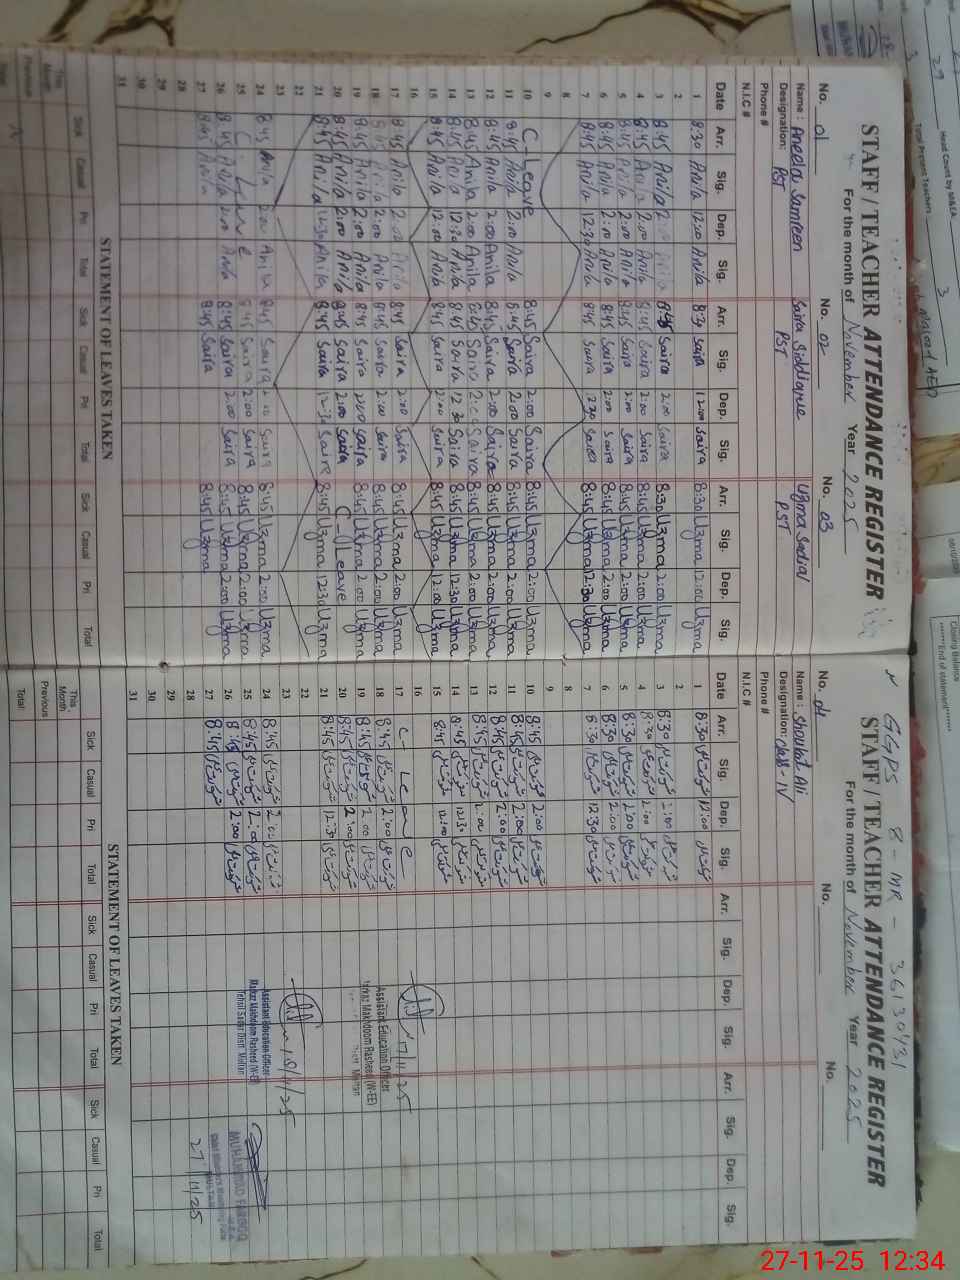 STAFF / TEACHER ATTENDANCE REGISTER
For the month of November Year 2025
No. 01 No. 02 No. 03
Name: Aneela Samreen Saira Siddique Uzma Sadia
Designation: PST PST PST
Phone #
N.I.C #
Date Arr. Sig. Dep. Sig. Arr. Sig. Dep. Sig. Arr. Sig. Dep. Sig.
1 8:30 Anila 12:00 Anila 8:30 Saira 12:00 Saira 8:30 Uzma 12:00 Uzma
2
3 8:45 Anila 2:00 Anila 8:45 Saira 2:00 Saira 8:30 Uzma 2:00 Uzma
4 8:45 Anila 2:00 Anila 8:45 Saira 2:00 Saira 8:45 Uzma 2:00 Uzma
5 8:45 Anila 2:00 Anila 8:45 Saira 2:00 Saira 8:45 Uzma 2:00 Uzma
6 8:45 Anila 2:00 Anila 8:45 Saira 2:00 Saira 8:45 Uzma 2:00 Uzma
7 8:45 Anila 12:30 Anila 8:45 Saira Saira 8:45 Uzma 12:30 Uzma
8
9
10 C-Leave 8:45 Saira 2:00 Saira 8:45 Uzma 2:00 Uzma
11 8:45 Anila 2:00 Anila 8:45 Saira 2:00 Saira 8:45 Uzma 2:00 Uzma
12 8:45 Anila 2:00 Anila 8:45 Saira 2:00 Saira 8:45 Uzma 2:00 Uzma
13 8:45 Anila 2:00 Anila 8:45 Saira 2:00 Saira 8:45 Uzma 2:00 Uzma
14 8:45 Anila 12:30 Anila 8:45 Saira 12:30 Saira 8:45 Uzma 12:30 Uzma
15 8:45 Anila 12:00 Anila 8:45 Saira 2:00 Saira 8:45 Uzma 12:00 Uzma
16
17 8:45 Anila 2:00 Anila 8:45 Saira 2:00 Saira 8:45 Uzma 2:00 Uzma
18 8:45 Anila 2:00 Anila 8:45 Saira 2:00 Saira 8:45 Uzma 2:00 Uzma
19 8:45 Anila 2:00 Anila 8:45 Saira 2:00 Saira 8:45 Uzma 2:00 Uzma
20 8:45 Anila 2:00 Anila 8:45 Saira 2:00 Saira C-Leave
21 8:45 Anila 12:30 Anila 8:45 Saira 12:30 Saira 8:45 Uzma 12:30 Uzma
22
23
24 8:45 Anila 2:00 Anila 8:45 Saira 2:00 Saira 8:45 Uzma 2:00 Uzma
25 8:45 Saira 2:00 Saira 8:45 Uzma 2:00 Uzma
26 8:45 Anila 2:00 Anila 8:45 Saira 2:00 Saira 8:45 Uzma 2:00 Uzma
27 8:45 Anila 8:45 Saira 8:45 Uzma
28
29
30
31
STATEMENT OF LEAVES TAKEN
Sick Casual Pri Total Sick Casual Pri Total Sick Casual Pri Total
This Month
Previous
GGPS 8-MR - 36130431
STAFF / TEACHER ATTENDANCE REGISTER
For the month of November Year 2025
No. 04 No. No.
Name: Shoukat Ali
Designation: class-IV
Phone #
N.I.C #
Date Arr. Sig. Dep. Sig. Arr. Sig. Dep. Sig. Arr. Sig. Dep. Sig.
1 8:30 شوکت علی 12:00 شوکت علی
2
3 8:30 شوکت علی 2:00 شوکت علی
4 8:30 شوکت علی 2:00 شوکت علی
5 8:30 شوکت علی 2:00 شوکت علی
6 8:30 شوکت علی 2:00 شوکت علی
7 8:30 شوکت علی 12:30 شوکت علی
8
9
10 8:45 شوکت علی 2:00 شوکت علی
11 8:45 شوکت علی 2:00 شوکت علی
12 8:45 شوکت علی 2:00 شوکت علی
13 8:45 شوکت علی 2:00 شوکت علی
14 8:45 شوکت علی 12:30 شوکت علی
15 8:45 شوکت علی 12:00 شوکت علی
16
17 C-Leave
18 8:45 شوکت علی 2:00 شوکت علی
19 8:45 شوکت علی 2:00 شوکت علی
20 8:45 شوکت علی 2:00 شوکت علی
21 8:45 شوکت علی 12:30 شوکت علی
22
23
24 8:45 شوکت علی 2:00 شوکت علی
25 8:45 شوکت علی 2:00 شوکت علی
26 8:45 شوکت علی 2:00 شوکت علی
27 8:45 شوکت علی
28
29
30
31
17/11/25
Assistant Education Officer
Markaz Makhdoom Rasheed (W-EE)
Distt. Multan
18/11/25
Assistant Education Officer
Markaz Makhdoom Rasheed (W-EE)
Tehsil Sadar Distt. Multan
MUHAMMAD FAROOQ
27/11/25
STATEMENT OF LEAVES TAKEN
Sick Casual Pri Total Sick Casual Pri Total Sick Casual Pri Total
This Month
Previous
Total:
Head Count by MEA
Total Present Teachers 3
29
Closing Balance
*******End of statement*******
27-11-25 12:34